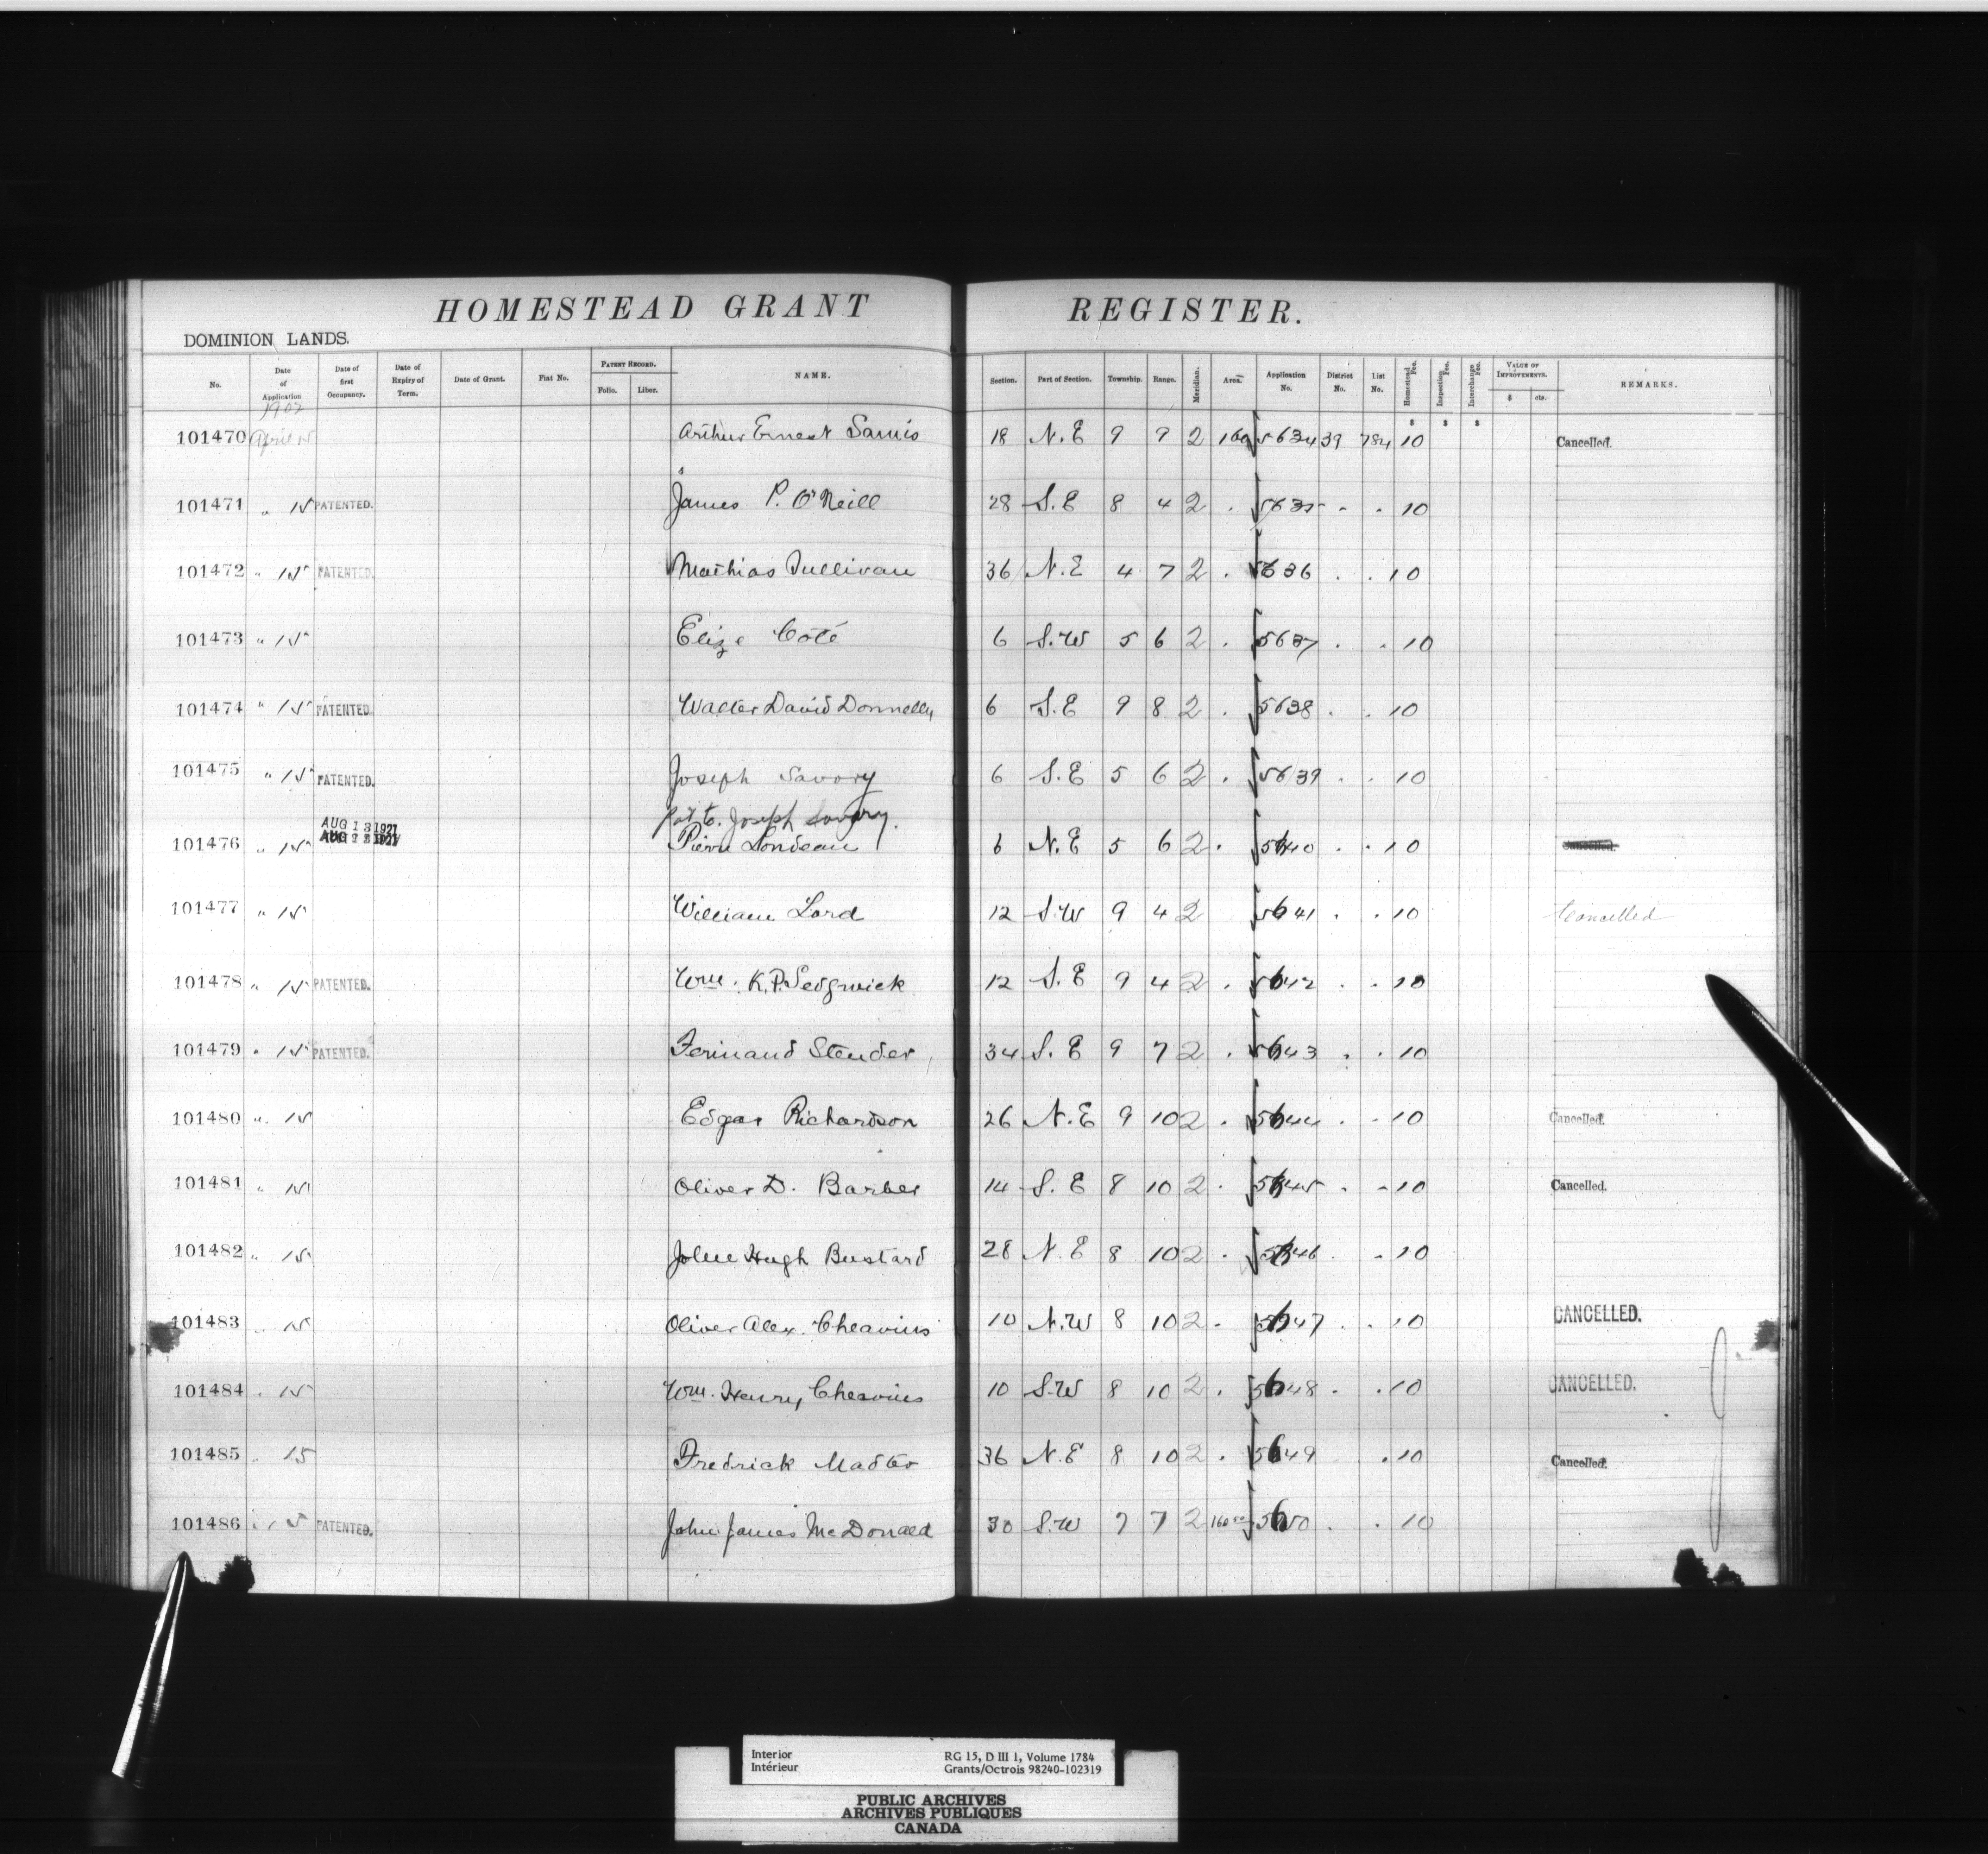 HOMESTEAD GRANT REGISTER.
DOMINION LANDS.
No. Date of Application Date of first Occupancy. Date of Expiry of Term. Date of Grant. Fiat No. PATENT RECORD. Folio. Liber. NAME. Section. Part of Section. Township. Range. Meridian. Area. Application No. District No. List No. Homestead Fee. Inspection Fee. Interchange Fee. VALUE OF IMPROVEMENTS. $ cts. REMARKS.
1902
$ $ $
101470 April 15 Arthur Ernest Samis 18 N.E 9 9 2 160 5634 39 784 10 Cancelled.
101471 " 15 PATENTED. James P. O'Neill 28 S.E 8 4 2 . 5635 . . 10
101472 " 15 PATENTED. Mathias Sullivan 36 N.E 4 7 2 . 5636 . . 10
101473 " 15 Elize Côté 6 S.W 5 6 2 . 5637 . . 10
101474 " 15 PATENTED. Walter David Donnelly 6 S.E 9 8 2 . 5638 . . 10
101475 " 15 PATENTED. Joseph Savory 6 S.E 5 6 2 . 5639 . . 10
pat to. Joseph Savory.
AUG 13 1921
101476 " 15 Pierre Londeau 6 N.E 5 6 2 . 5640 . . 10 Cancelled.
101477 " 15 William Lord 12 S.W 9 4 2 5641 . . 10 Cancelled
101478 " 15 PATENTED. Wm. K.P. Sedgwick 12 S.E 9 4 2 . 5642 . . 10
101479 " 15 PATENTED. Ferinand Stender 34 S.E 9 7 2 . 5643 . . 10
101480 " 15 Edgar Richardson 26 N.E 9 10 2 . 5644 . . 10 Cancelled.
101481 " 15 Oliver D. Barber 14 S.E 8 10 2 . 5645 . . 10 Cancelled.
101482 " 15 John Hugh Bustard 28 N.E 8 10 2 . 5646 . . 10
101483 " 15 Oliver Alex. Cheavins 10 N.W 8 10 2 . 5647 . . 10 CANCELLED.
101484 " 15 Wm. Henry Cheavins 10 S.W 8 10 2 . 5648 . . 10 CANCELLED.
101485 " 15 Fredrick Madter 36 N.E 8 10 2 . 5649 . 10 Cancelled.
101486 " 15 PATENTED. John James McDonald 30 S.W 7 7 2 160 5650 . . 10
Interior RG 15, D III 1, Volume 1784
Intérieur Grants/Octrois 98240-102319
PUBLIC ARCHIVES
ARCHIVES PUBLIQUES
CANADA